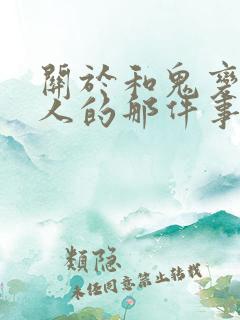 關於和鬼
人的那件事
類隐
未经同意禁止转载